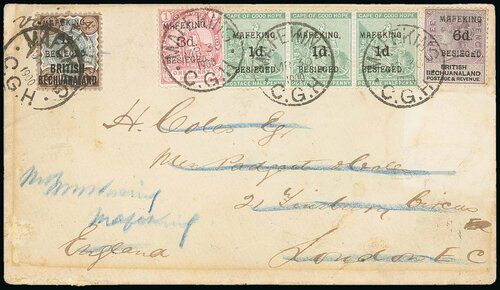 MAFEKING,
BESIEGED.
BRITISH
BECHUANALAND
MAFEKING,
3d
BESIEGED.
CAPE OF GOOD HOPE
MAFEKING,
1d
BESIEGED.
CAPE OF GOOD HOPE
MAFEKING,
1d
BESIEGED.
CAPE OF GOOD HOPE
MAFEKING,
1d
BESIEGED.
MAFEKING,
6d
BESIEGED.
BRITISH
BECHUANALAND
POSTAGE & REVENUE
C.G.H
C.G.H.
C.G.H.
C.G.H.
H. Coles Esq
21 Finsbury Circus
Mafeking
England
London E C